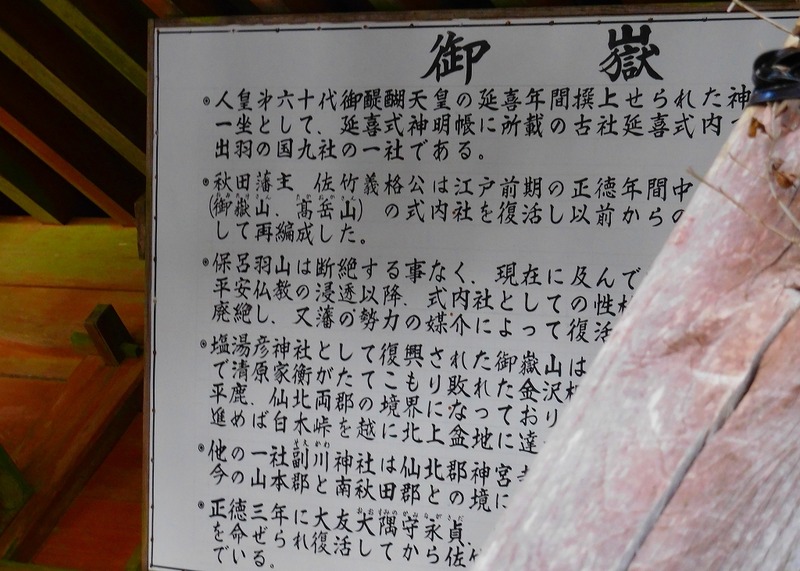 御嶽
◉人皇才六十代御醍醐天皇の延喜年間撰上せられた神
一坐として、延喜式神明帳に所載の古社延喜式内
出羽の国九社の一社である。
◉秋田藩主 佐竹義格公は江戸前期の正徳年間中
(御嶽山、髙岳山) の式内社を復活し以前からの
して再編成した。
◉保呂羽山は断絶する事なく、現在に及んで
平安仏教の浸透以降、式内社としての性
廃絶し、又藩の勢力の媒介によって復活
◉塩湯彦神社として復興された御嶽山は
で清原家衡がたてこもり敗れた金沢
平鹿、仙北両郡の境界になっており
進めば白木峠を越え北上盆地に達
◉他の一社副川神社は仙北郡神宮寺
今の山本郡と南秋田郡との境に
◉正徳三年に大友大隅守永貞、
を命ぜられ復活してから佐
でいる。